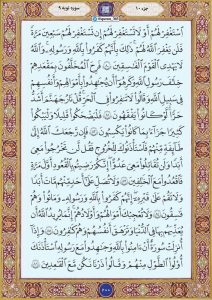 جزء ۱۰
سوره توبه ۹
ٱسۡتَغۡفِرۡ لَهُمۡ أَوۡ لَا تَسۡتَغۡفِرۡ لَهُمۡ إِن تَسۡتَغۡفِرۡ لَهُمۡ سَبۡعِينَ مَرَّةٗ
فَلَن يَغۡفِرَ ٱللَّهُ لَهُمۡۚ ذَٰلِكَ بِأَنَّهُمۡ كَفَرُواْ بِٱللَّهِ وَرَسُولِهِۦۗ وَٱللَّهُ
لَا يَهۡدِي ٱلۡقَوۡمَ ٱلۡفَٰسِقِينَ ۝ فَرِحَ ٱلۡمُخَلَّفُونَ بِمَقۡعَدِهِمۡ
خِلَٰفَ رَسُولِ ٱللَّهِ وَكَرِهُوٓاْ أَن يُجَٰهِدُواْ بِأَمۡوَٰلِهِمۡ وَأَنفُسِهِمۡ
فِي سَبِيلِ ٱللَّهِ وَقَالُواْ لَا تَنفِرُواْ فِي ٱلۡحَرِّۗ قُلۡ نَارُ جَهَنَّمَ أَشَدُّ
حَرّٗاۚ لَّوۡ كَانُواْ يَفۡقَهُونَ ۝ فَلۡيَضۡحَكُواْ قَلِيلٗا وَلۡيَبۡكُواْ
كَثِيرٗا جَزَآءَۢ بِمَا كَانُواْ يَكۡسِبُونَ ۝ فَإِن رَّجَعَكَ ٱللَّهُ إِلَىٰ
طَآئِفَةٖ مِّنۡهُمۡ فَٱسۡتَـٔۡذَنُوكَ لِلۡخُرُوجِ فَقُل لَّن تَخۡرُجُواْ مَعِيَ
أَبَدٗا وَلَن تُقَٰتِلُواْ مَعِيَ عَدُوًّاۖ إِنَّكُمۡ رَضِيتُم بِٱلۡقُعُودِ أَوَّلَ مَرَّةٖ
فَٱقۡعُدُواْ مَعَ ٱلۡخَٰلِفِينَ ۝ وَلَا تُصَلِّ عَلَىٰٓ أَحَدٖ مِّنۡهُم مَّاتَ
أَبَدٗا وَلَا تَقُمۡ عَلَىٰ قَبۡرِهِۦٓۖ إِنَّهُمۡ كَفَرُواْ بِٱللَّهِ وَرَسُولِهِۦ وَمَاتُواْ وَهُمۡ
فَٰسِقُونَ ۝ وَلَا تُعۡجِبۡكَ أَمۡوَٰلُهُمۡ وَأَوۡلَٰدُهُمۡۚ إِنَّمَا يُرِيدُ ٱللَّهُ أَن
يُعَذِّبَهُم بِهَا فِي ٱلدُّنۡيَا وَتَزۡهَقَ أَنفُسُهُمۡ وَهُمۡ كَٰفِرُونَ ۝ وَإِذَآ
أُنزِلَتۡ سُورَةٌ أَنۡ ءَامِنُواْ بِٱللَّهِ وَجَٰهِدُواْ مَعَ رَسُولِهِ ٱسۡتَـٔۡذَنَكَ
أُوْلُواْ ٱلطَّوۡلِ مِنۡهُمۡ وَقَالُواْ ذَرۡنَا نَكُن مَّعَ ٱلۡقَٰعِدِينَ ۝
۲۰۰